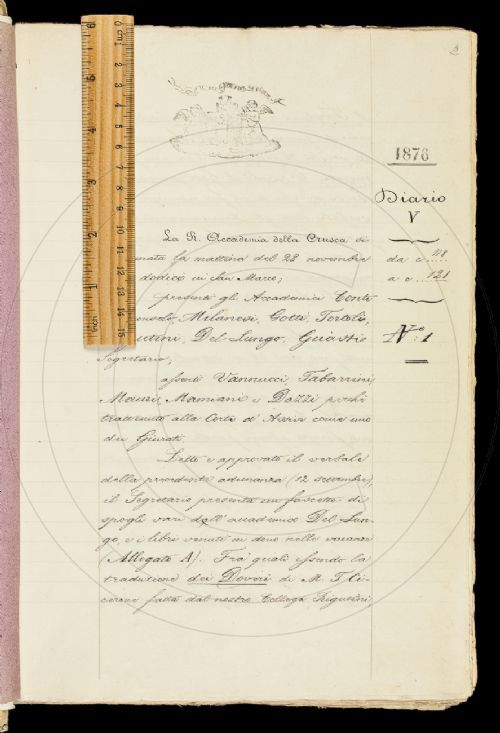 2
1876
Diario
V
da c. 118
a c. 121
N° 1
La R. Accademia della Crusca
nata la mattina del 28 novembre
dodici in San Marco;
presenti gli Accademici Conti
Milanesi, Gotti, Tortoli,
Del Lungo, Guasti
Segretario;
assenti Vannucci, Tabarrini
Mamiani e Dazzi perchè
trattenuto alla Corte d'Assise come uno
dei Giurati.
Letto e approvato il verbale
della precedente adunanza (12 settembre)
il Segretario presenta un fascetto di
spogli vari dell'accademico Del Lun
go, e i libri venuti in dono nelle vacanze
(Allegato A). Fra' quali essendo la
traduzione dei Doveri di M. T. Ci-
cerone fatta dal nostro Collega Rigutini